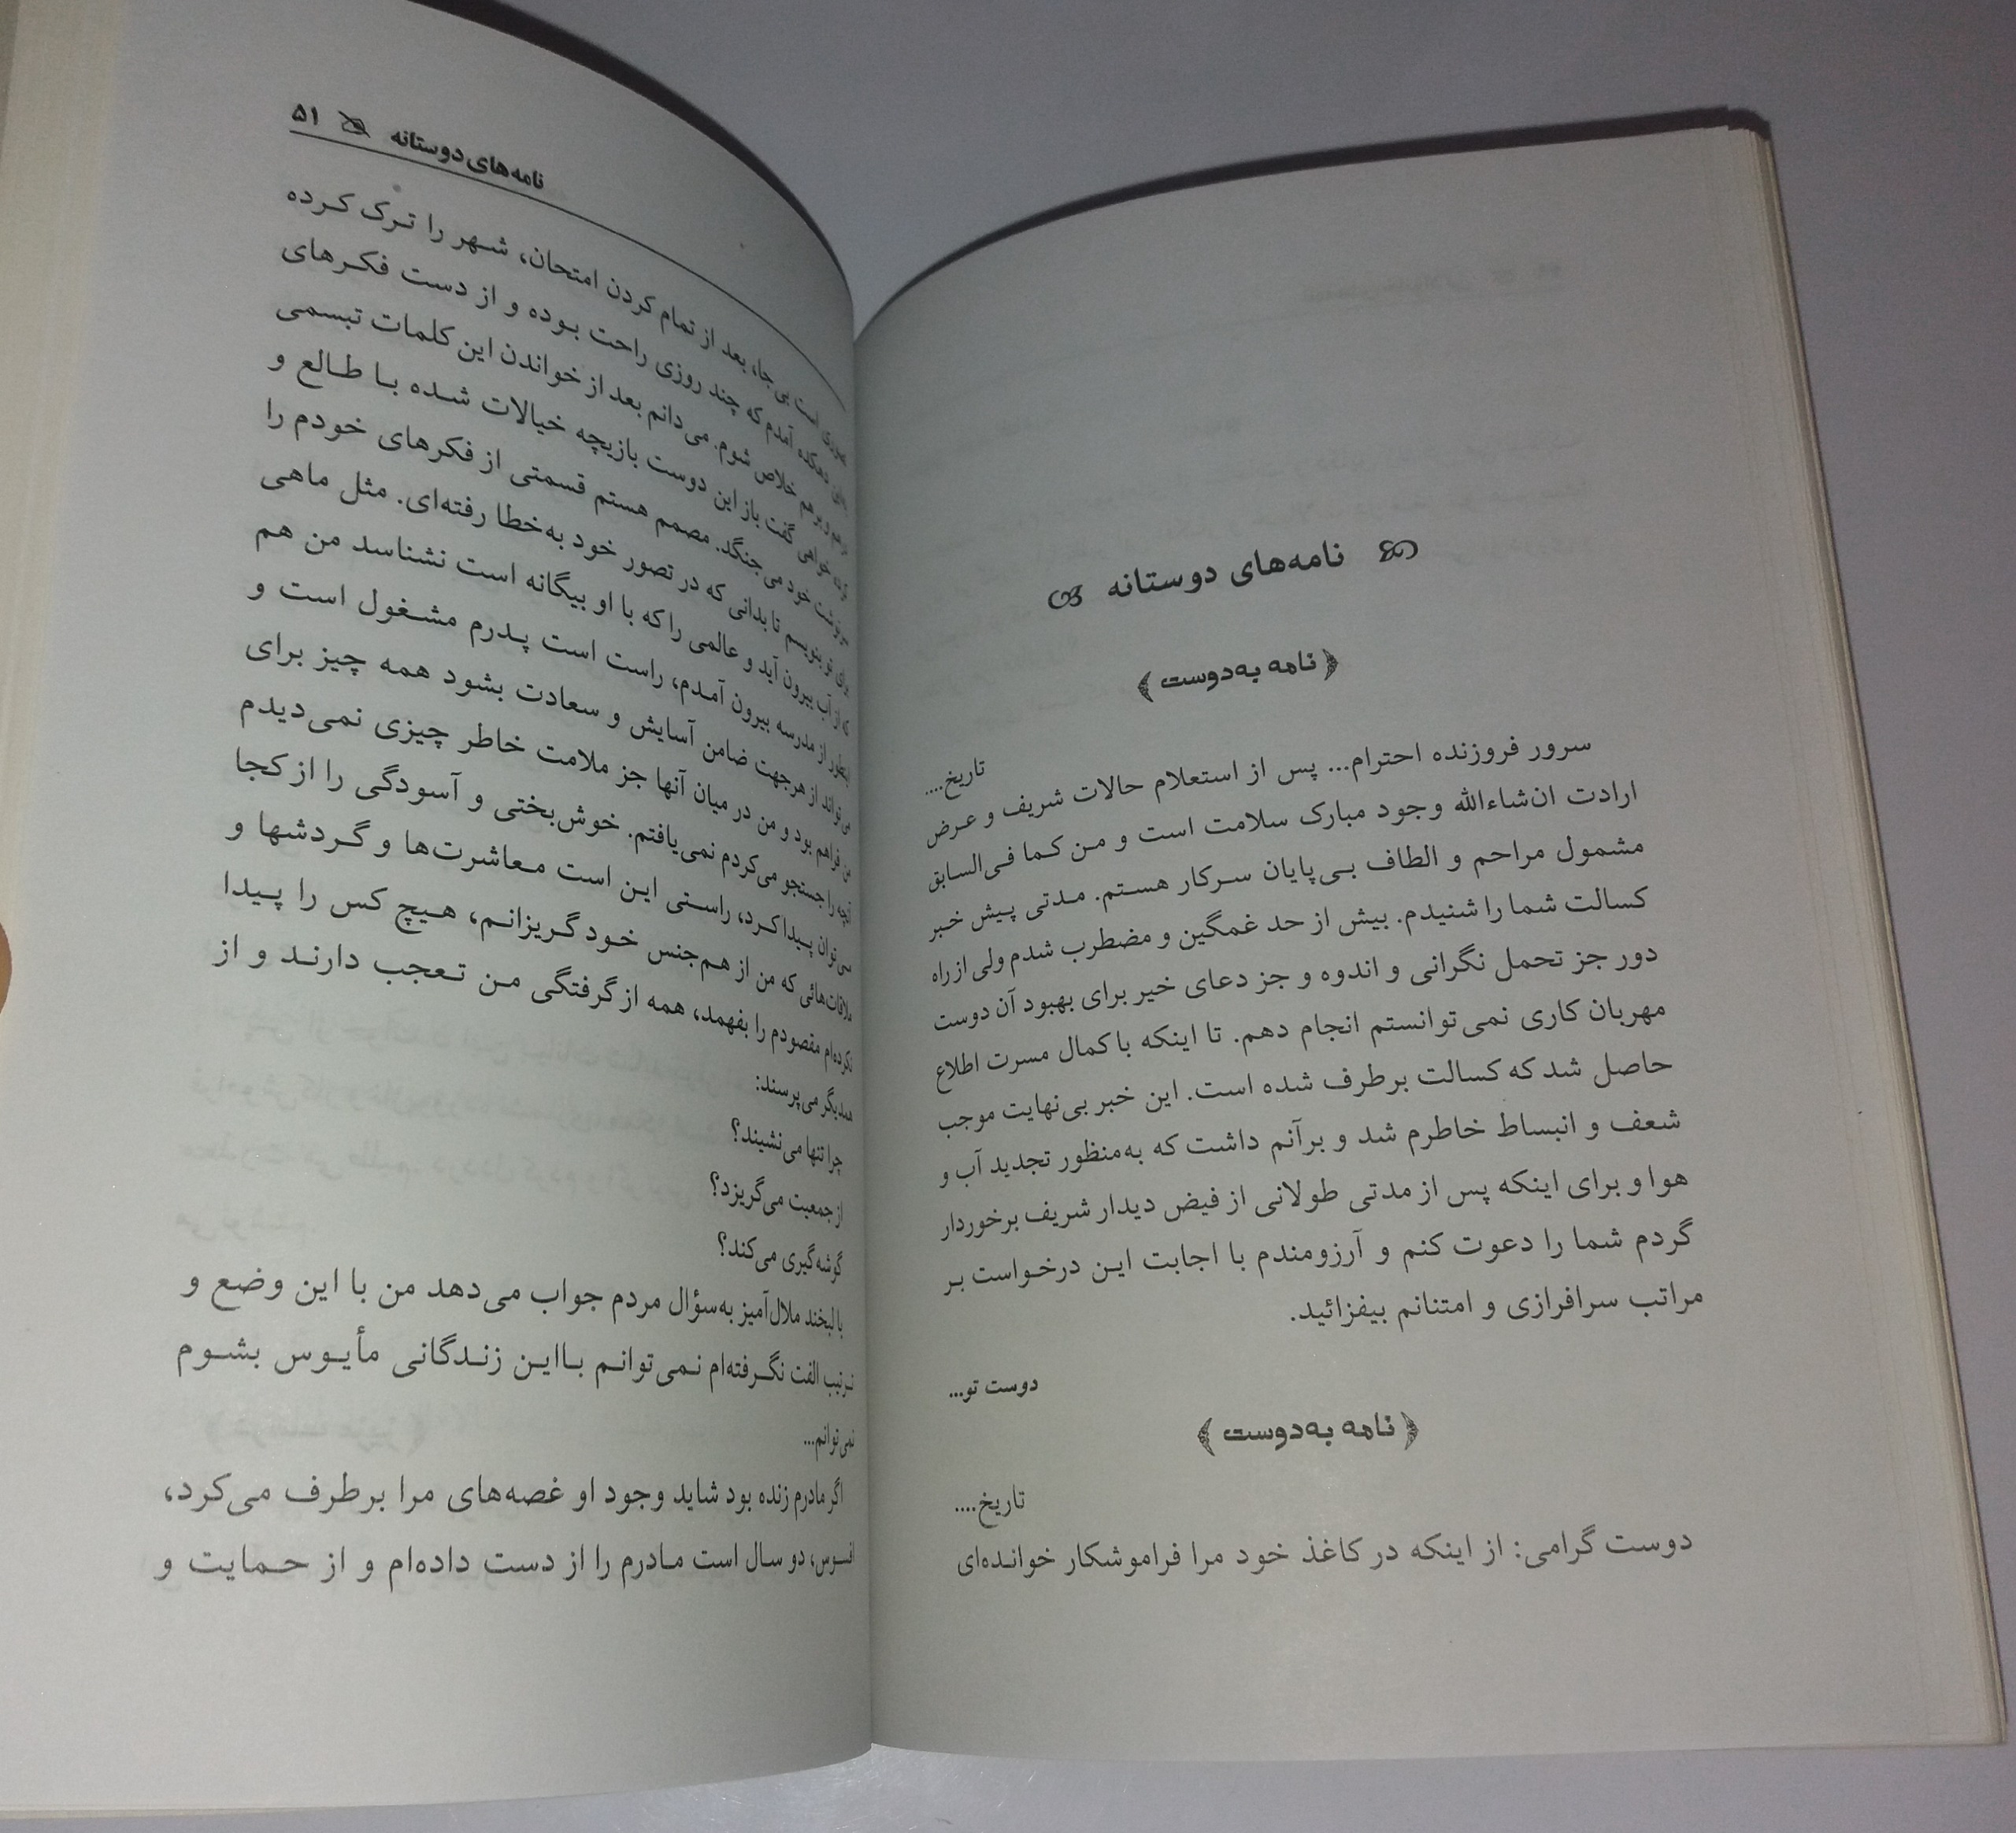 نامه‌های دوستانه
﴿نامه به‌دوست﴾
تاریخ....
سرور فروزنده احترام... پس از استعلام حالات شریف و عرض
ارادت ان‌شاءالله وجود مبارک سلامت است و من کما فی‌السابق
مشمول مراحم و الطاف بی‌پایان سرکار هستم. مدتی پیش خبر
کسالت شما را شنیدم. بیش از حد غمگین و مضطرب شدم ولی از راه
دور جز تحمل نگرانی و اندوه و جز دعای خیر برای بهبود آن دوست
مهربان کاری نمی‌توانستم انجام دهم. تا اینکه با کمال مسرت اطلاع
حاصل شد که کسالت برطرف شده است. این خبر بی‌نهایت موجب
شعف و انبساط خاطرم شد و برآنم داشت که به‌منظور تجدید آب و
هوا و برای اینکه پس از مدتی طولانی از فیض دیدار شریف برخوردار
گردم شما را دعوت کنم و آرزومندم با اجابت این درخواست بر
مراتب سرافرازی و امتنانم بیفزائید.
دوست تو...
﴿نامه به‌دوست﴾
تاریخ....
دوست گرامی: از اینکه در کاغذ خود مرا فراموشکار خوانده‌ای
نامه‌های دوستانه ۵۱
است بی‌جا، بعد از تمام کردن امتحان، شهر را ترک کرده
دهکده آمدم که چند روزی راحت بوده و از دست فکرهای
برهم خلاص شوم. می‌دانم بعد از خواندن این کلمات تبسمی
خواهی گفت باز این دوست بازیچه خیالات شده با طالع و
خود می‌جنگد. مصمم هستم قسمتی از فکرهای خودم را
برای تو بنویسم تا بدانی که در تصور خود به‌خطا رفته‌ای. مثل ماهی
که از آب بیرون آید و عالمی را که با او بیگانه است نشناسد من هم
اینطور از مدرسه بیرون آمدم، راست است پدرم مشغول است و
می‌تواند از هرجهت ضامن آسایش و سعادت بشود همه چیز برای
من فراهم بود و من در میان آنها جز ملامت خاطر چیزی نمی‌دیدم
آنچه را جستجو می‌کردم نمی‌یافتم. خوش‌بختی و آسودگی را از کجا
می‌توان پیدا کرد، راستی این است معاشرت‌ها و گردشها و
ملاقات‌هائی که من از هم‌جنس خود گریزانم، هیچ کس را پیدا
نکرده‌ام مقصودم را بفهمد، همه از گرفتگی من تعجب دارند و از
همدیگر می‌پرسند:
چرا تنها می‌نشیند؟
از جمعیت می‌گریزد؟
گوشه‌گیری می‌کند؟
با لبخند ملال‌آمیز به‌سؤال مردم جواب می‌دهد من با این وضع و
ترتیب الفت نگرفته‌ام نمی‌توانم بااین زندگانی مأیوس بشوم
نمی‌توانم...
اگر مادرم زنده بود شاید وجود او غصه‌های مرا برطرف می‌کرد،
افسوس، دو سال است مادرم را از دست داده‌ام و از حمایت و